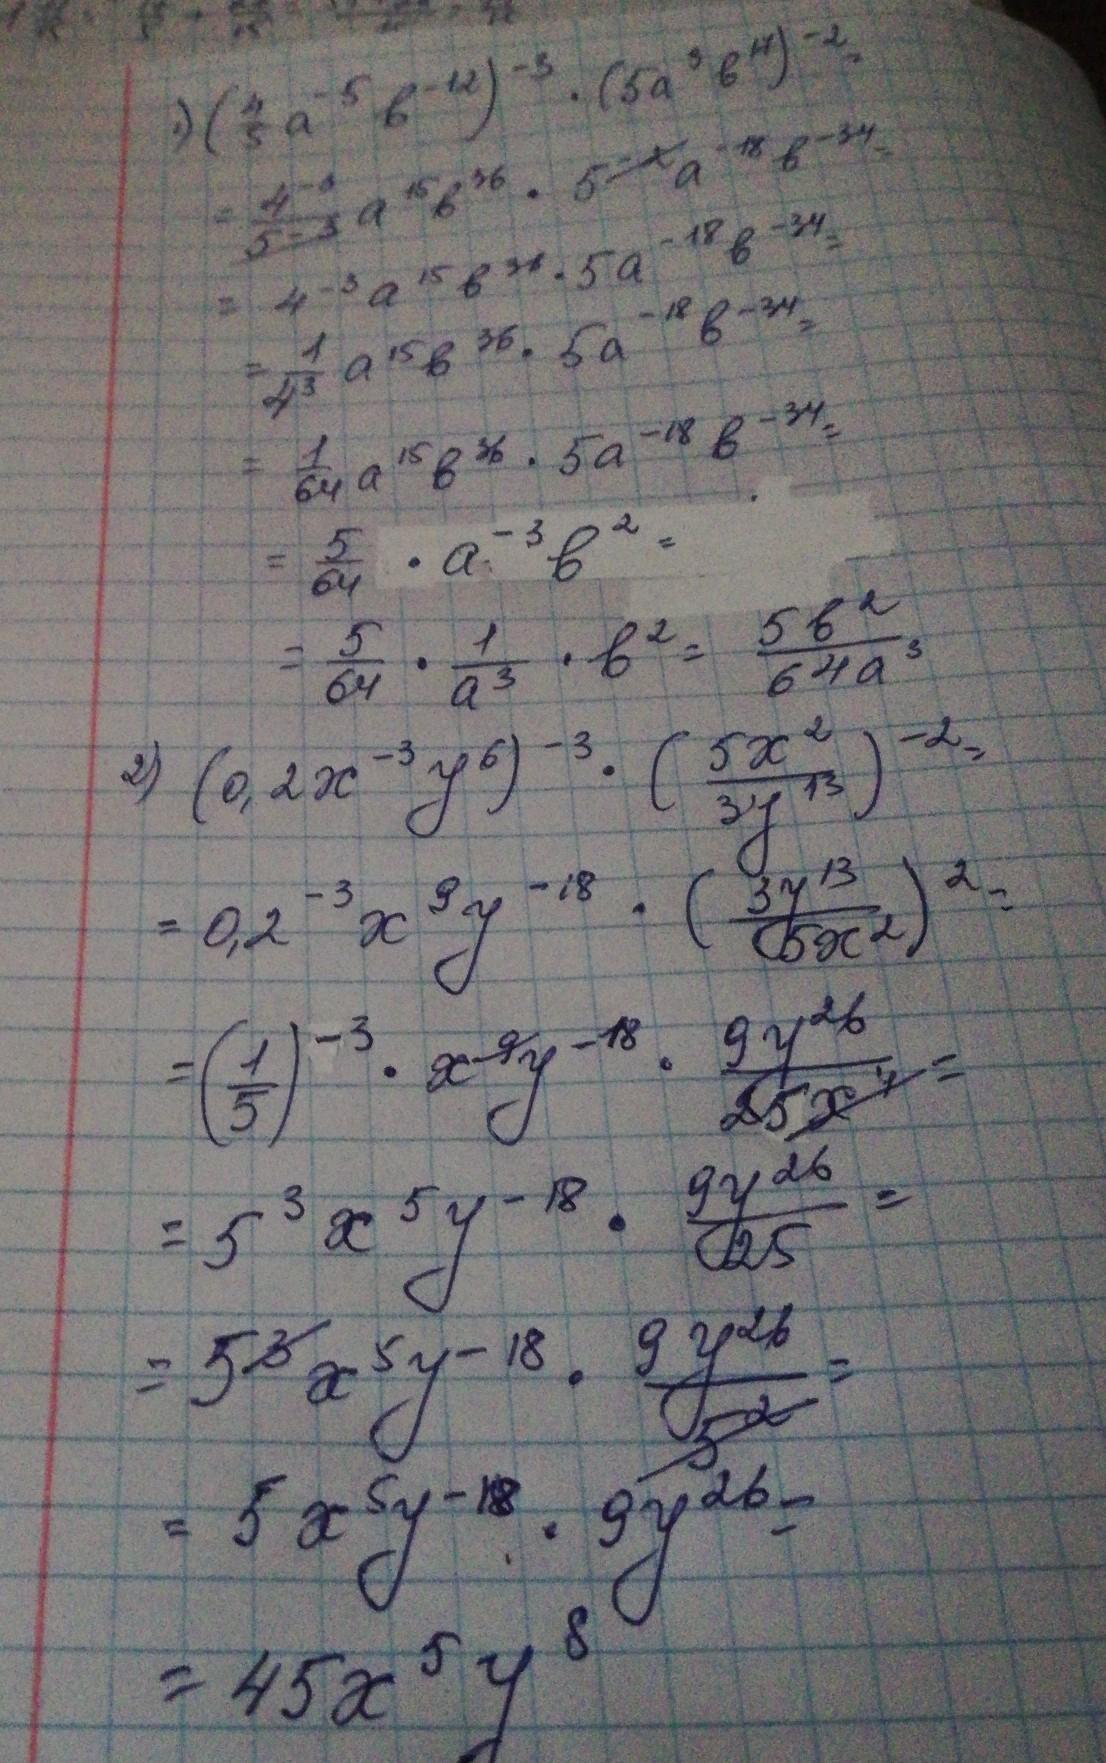 1) (4/5 a^-5 b^-12)^-3 · (5a^9 b^17)^-2 =
= 4^-3/5^-3 a^15 b^36 · 5^-2 a^-18 b^-34 =
= 4^-3 a^15 b^36 · 5a^-18 b^-34 =
= 1/4^3 a^15 b^36 · 5a^-18 b^-34 =
= 1/64 a^15 b^36 · 5a^-18 b^-34 =
= 5/64 · a^-3 b^2 =
= 5/64 · 1/a^3 · b^2 = 5b^2/64a^3
2) (0,2x^-3 y^6)^-3 · (5x^2/3y^13)^-2 =
= 0,2^-3 x^9 y^-18 · (3y^13/5x^2)^2 =
= (1/5)^-3 · x^9 y^-18 · 9y^26/25x^4 =
= 5^3 x^5 y^-18 · 9y^26/25 =
= 5^3 x^5 y^-18 · 9y^26/5^2 =
= 5x^5 y^-18 · 9y^26 =
= 45x^5 y^8